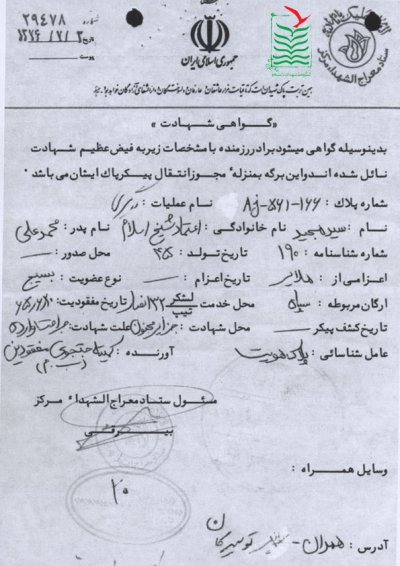 شماره ۲۹۴۷۸
تاریخ ۱۳۷۶/۲/۲
پیوست
جمهوری اسلامی ایران
ستاد معراج الشهداء مرکز
« گواهی شهادت »
بدینوسیله گواهی میشود برادر رزمنده با مشخصات زیر به فیض عظیم شهادت
نائل شده اند و این برگه بمنزلهٔ مجوز انتقال پیکر پاک ایشان می باشد .
شماره پلاک : ۱۶۶-۵۶۱-AJ نام عملیات :
نام : سیدمجید نام خانوادگی : اعتماد شیخ اسلام نام پدر : محمدعلی
شماره شناسنامه : ۱۹۰ تاریخ تولد : ۴۵ محل صدور : —
اعزامی از : ملایر تاریخ اعزام : — نوع عضویت : بسیج
ارگان مربوطه : سپاه محل خدمت لشکر تیپ ۳۲ انصار تاریخ مفقودیت :
تاریخ کشف پیکر — محل شهادت : جزایر مجنون علت شهادت :
عامل شناسائی : پلاک هویت آورنده : کمیته جستجوی مفقودین
مسئول ستاد معراج الشهداء مرکز
بیرقی
وسایل همراه :
آدرس : همدان - تویسرکان